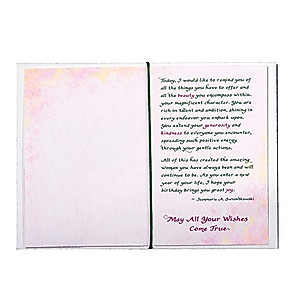 Today, I would like to remind you of
all the things you have to offer and
all the beauty you encompass within
your magnificent character. You are
rich in talent and ambition, shining in
every endeavor you embark upon.
You extend your generosity and
kindness to everyone you encounter,
spreading such positive energy
through your gentle actions.
All of this has created the amazing
woman you have always been and will
continue to be. As you enter a new
year of your life, I hope your
birthday brings you great joy.
May All Your Wishes
Come True